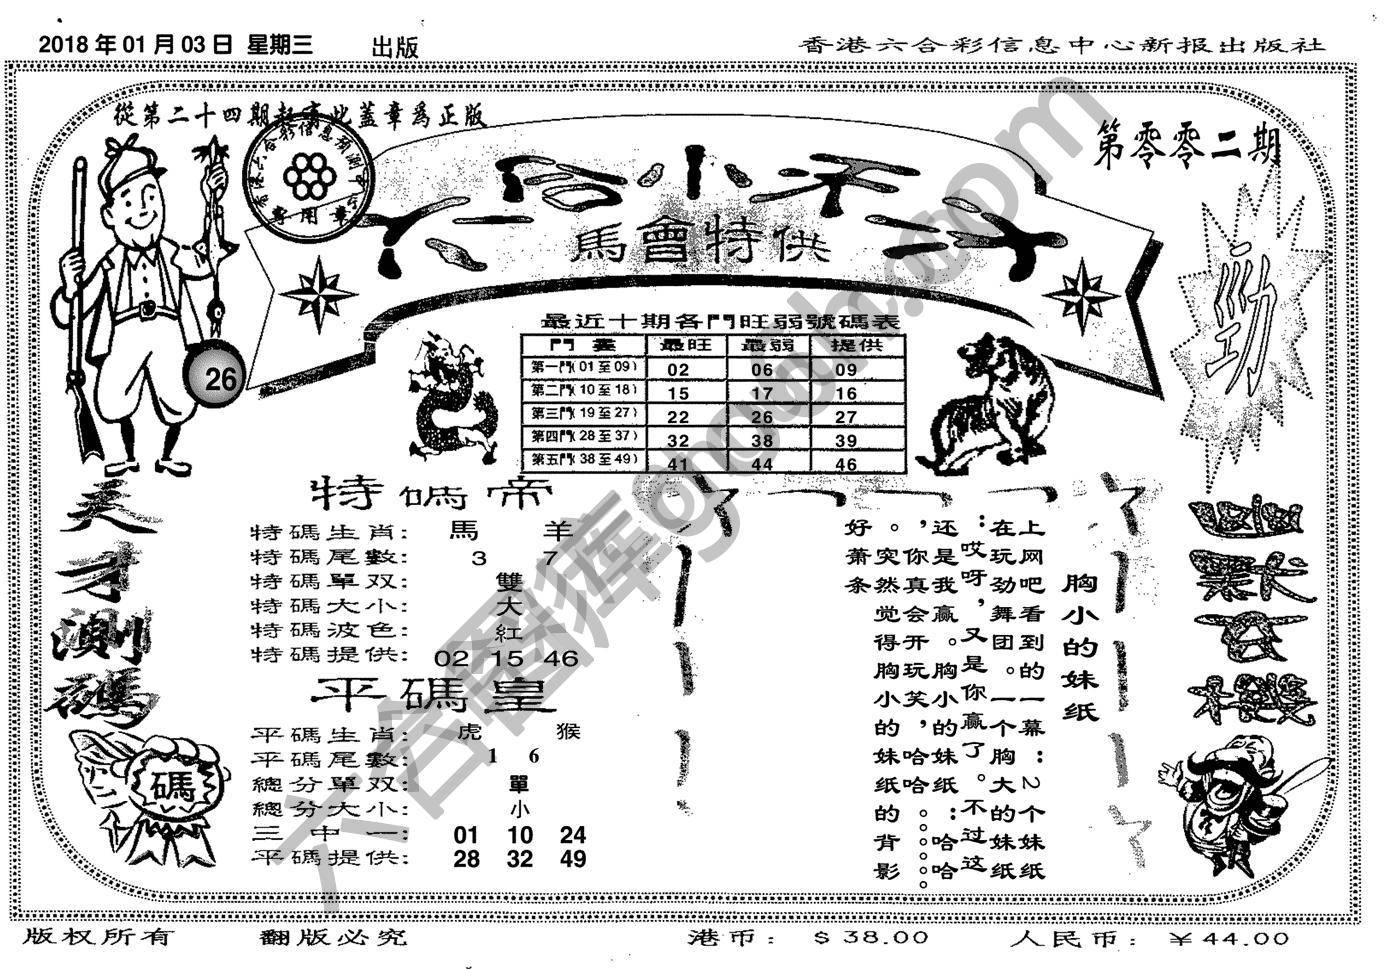 2018年01月03日 星期三 出版
香港六合彩信息中心新报出版社
從第二十四期起寄此蓋章為正版
第零零二期
六合小天王
馬會特供
專用章
26
勁
最近十期各門旺弱號碼表
門 最旺 最弱 提供
第一門(01至09) 02 06 09
第二門(10至18) 15 17 16
第三門(19至27) 22 26 27
第四門(28至37) 32 38 39
第五門(38至49) 41 44 46
天才測碼
特碼帝
特碼生肖: 馬 羊
特碼尾數: 3 7
特碼單双: 雙
特碼大小: 大
特碼波色: 紅
特碼提供: 02 15 46
平碼皇
平碼生肖: 虎 猴
平碼尾數: 1 6
總分單双: 單
總分大小: 小
三中一: 01 10 24
平碼提供: 28 32 49
碼
胸小的妹纸
上网吧看到的一幕:2个妹纸
在玩劲舞团。一个胸大的妹纸
:哎呀,又是你赢了。不过这
还是我赢。胸小的妹纸:哈哈
,你真会开玩笑,哈哈。。。。
。突然觉得胸小的妹纸的背影
好萧条
六合图库ghodh.com
版权所有 翻版必究
港币: $38.00 人民币: ¥44.00